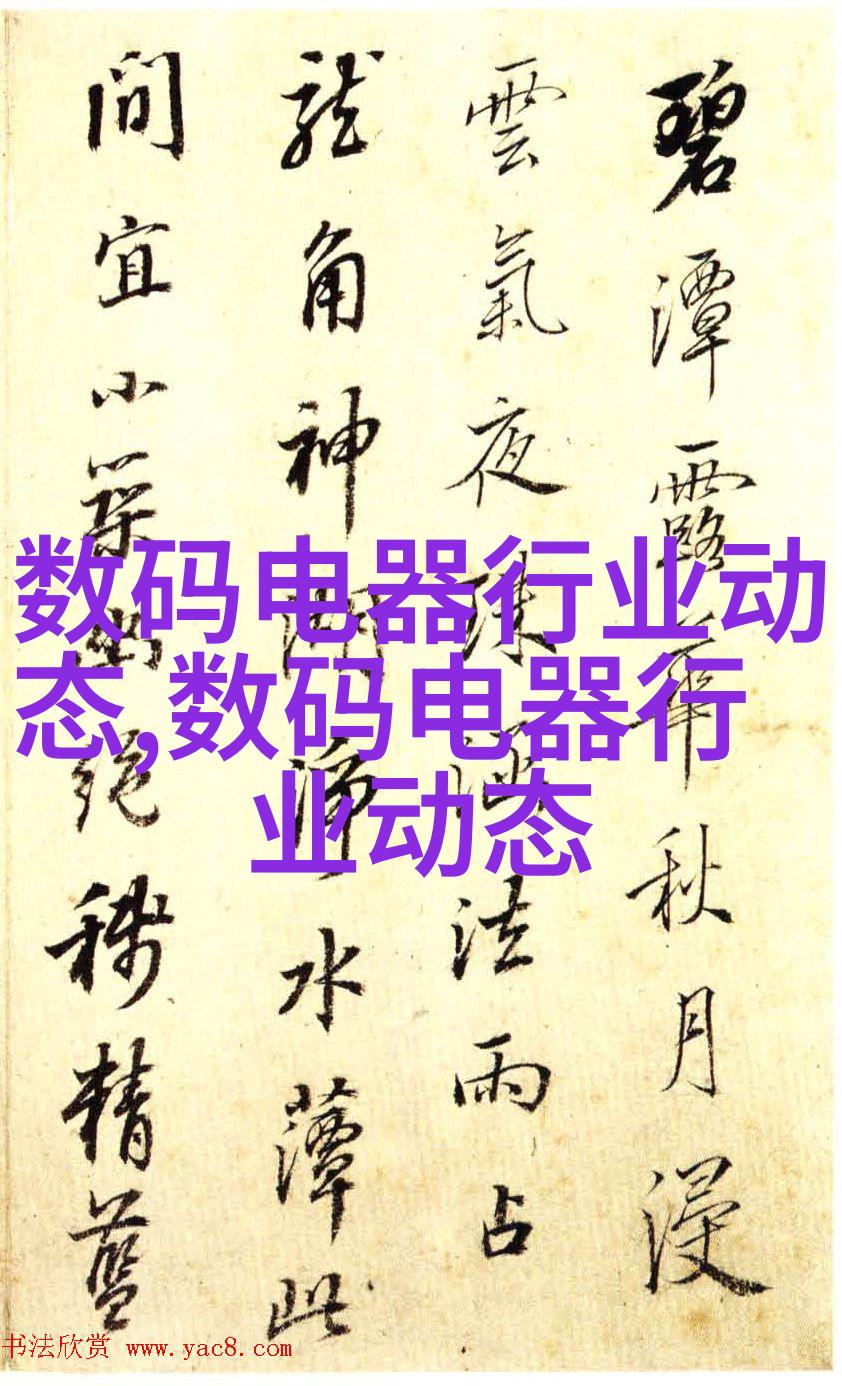 碧潭露華秋月浸
雲氣夜涵法雨占
龍角神淨水此
間宜小築幽絕精藍
数码电器行业动
态,数码电器行
业动态
书法欣赏 www.yac8.com